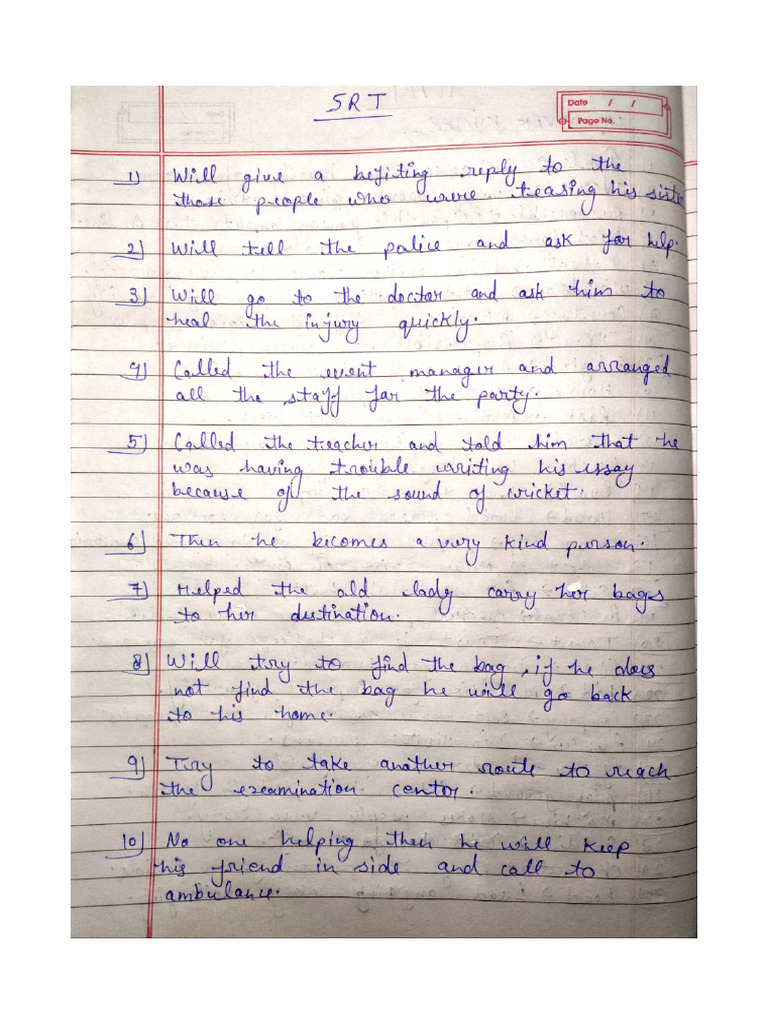 SRT
Date / /
Page No.
1) Will give a befiting reply to the
those people who were teasing his sister
2) Will tell the police and ask for help.
3) Will go to the doctor and ask him to
heal the injury quickly.
4) Called the event manager and arranged
all the staff for the party.
5) Called the teacher and told him that he
was having trouble writing his essay
because of the sound of cricket.
6) Then he becomes a very kind person.
7) Helped the old lady carry her bags
to her destination.
8) Will try to find the bag, if he does
not find the bag he will go back
to his home.
9) Try to take another route to reach
the examination center.
10) No one helping then he will keep
his friend in side and call to
ambulance.